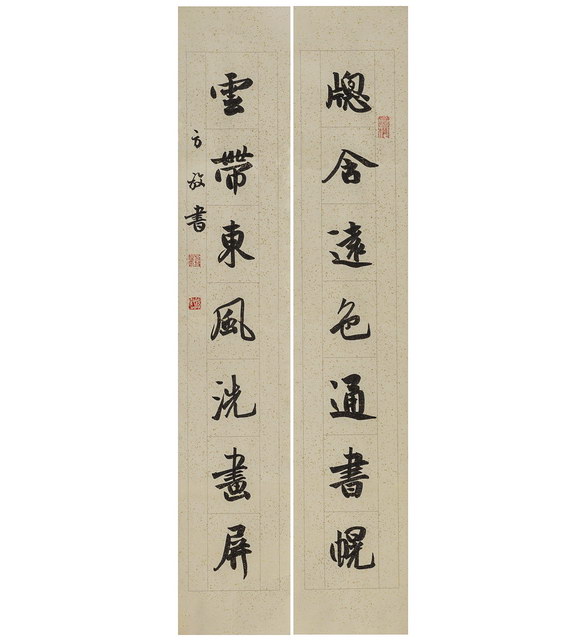 窗含遠色通書幌
雲帶東風洗畫屏
方放書